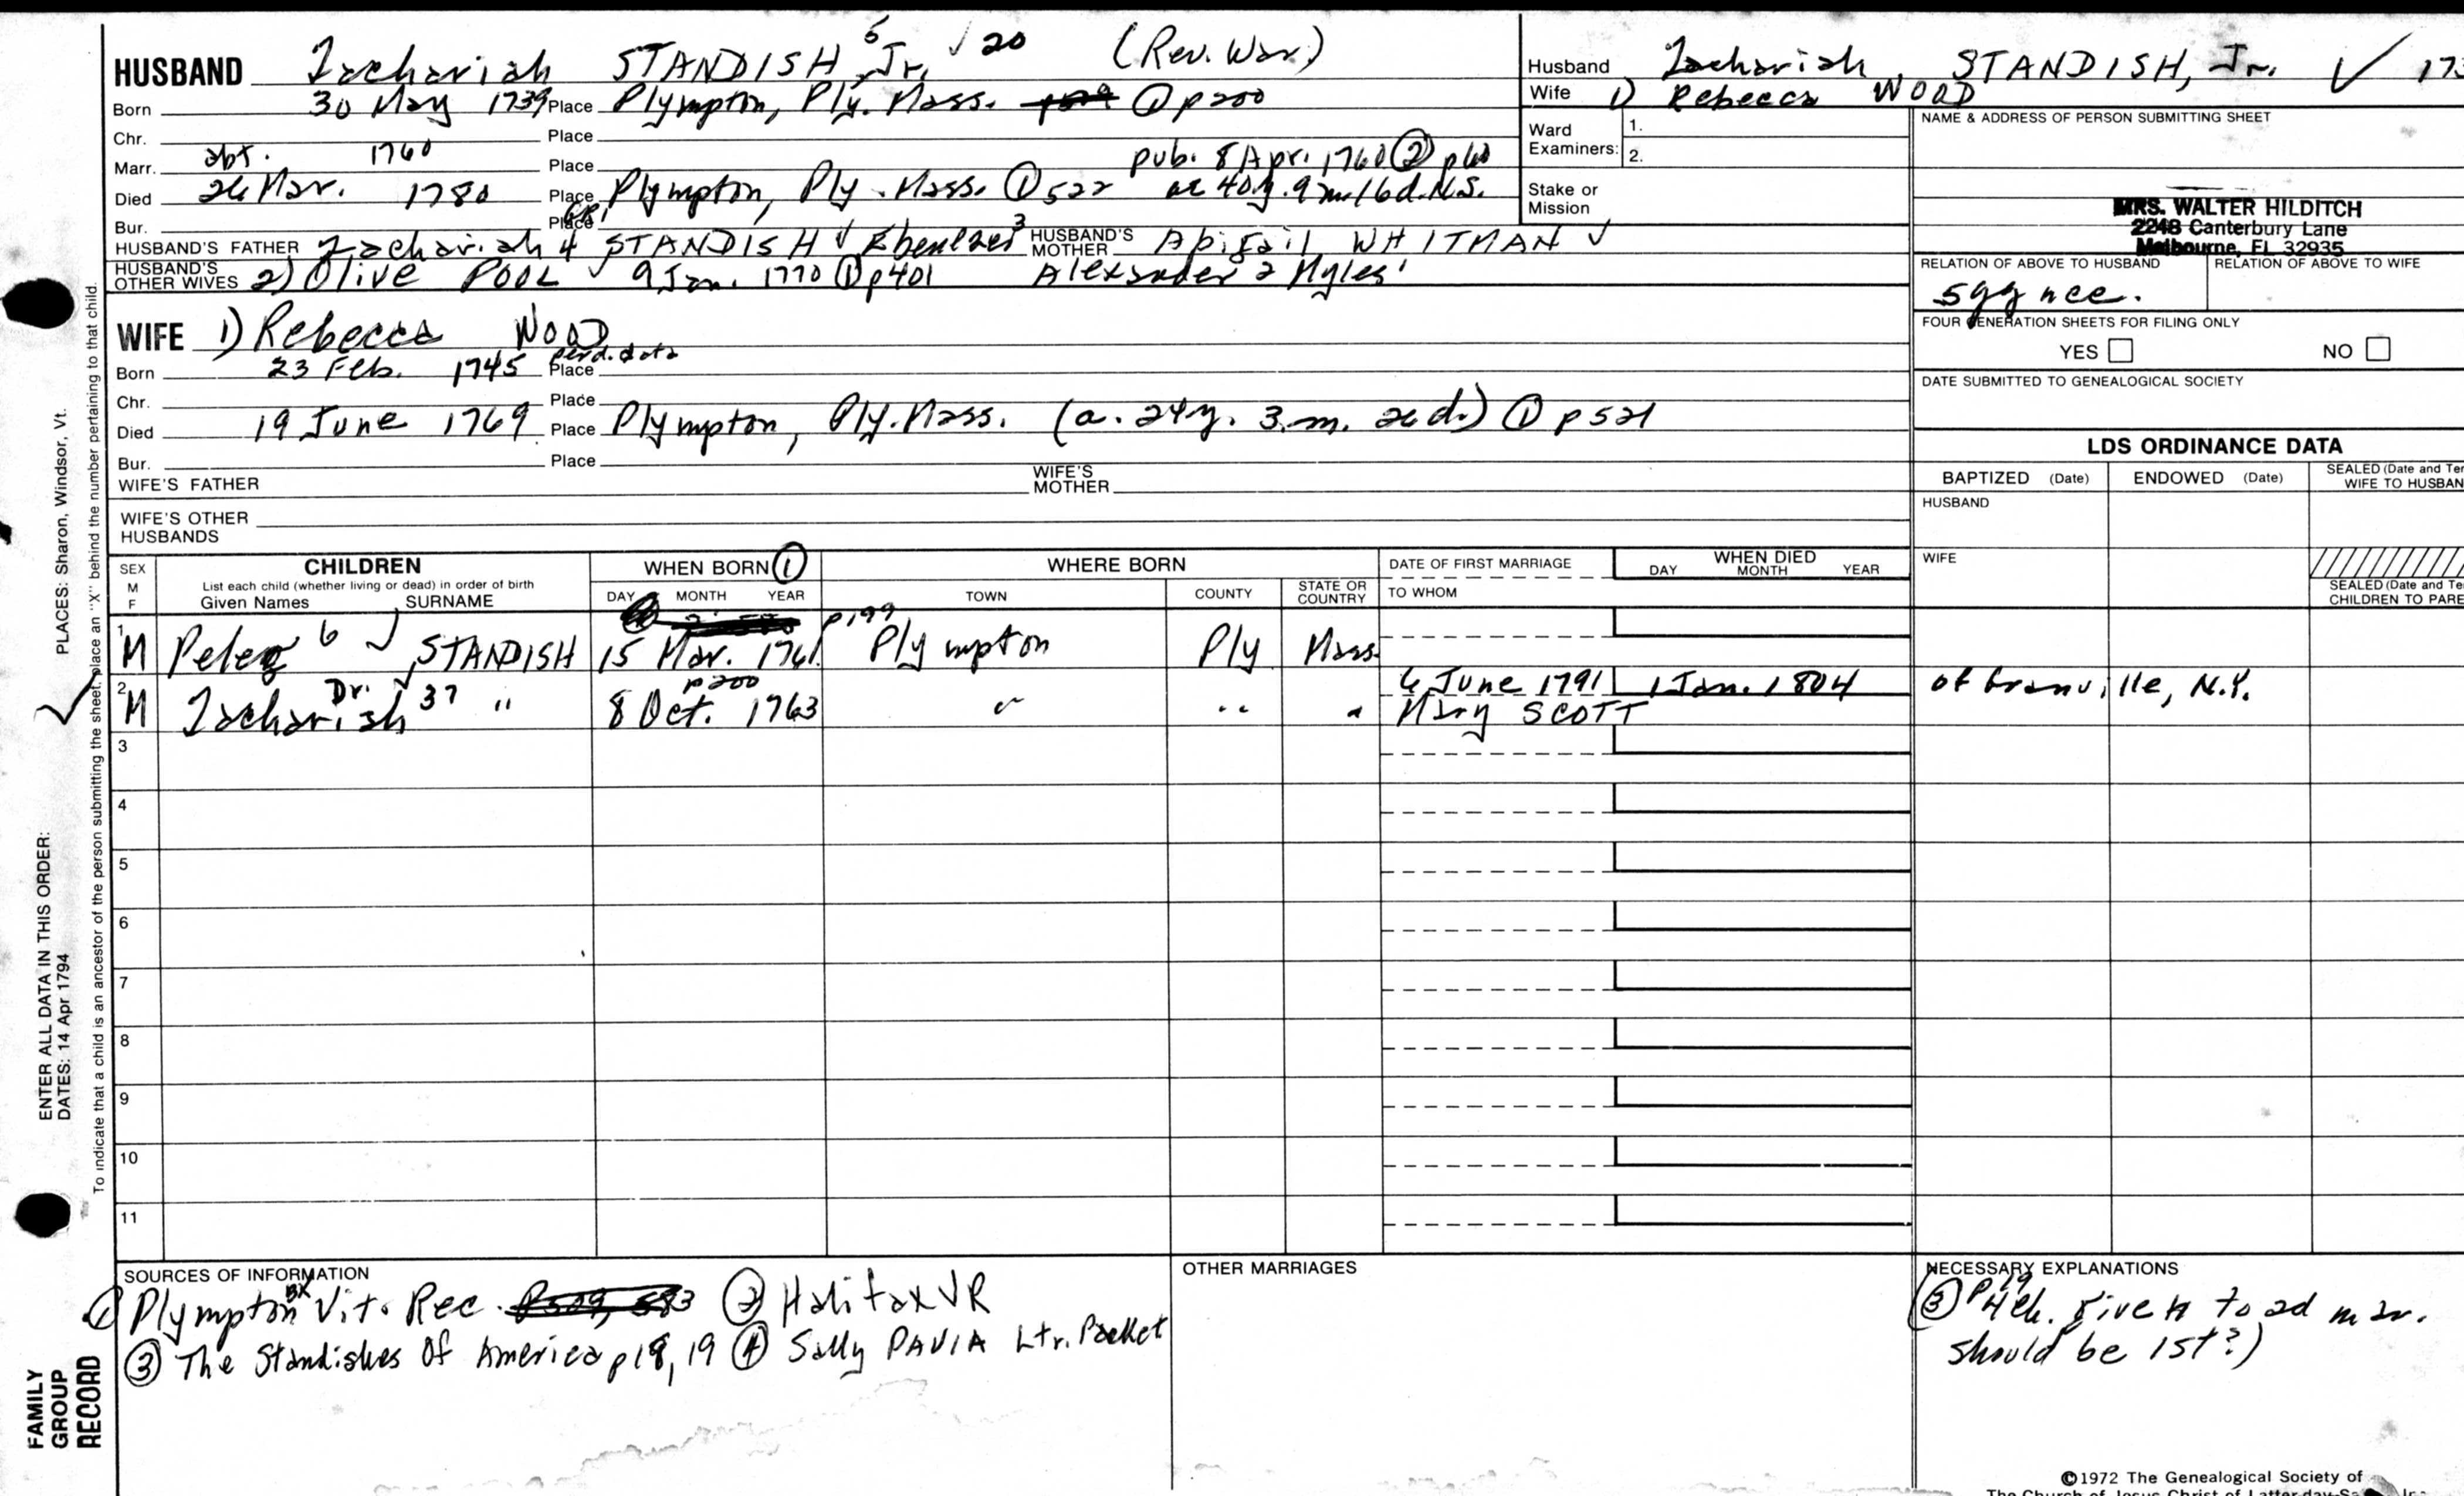 HUSBAND Zachariah STANDISH 5 Jr. √ 20 (Rev. War)
Born 30 May 1739 Place Plympton, Ply. Mass. ① p200
Chr. Place
Marr. abt. 1760 Place pub. 8 Apr. 1760 ② p60
Died 26 Mar. 1780 Place Plympton, Ply. Mass. ① 522 ae 40y. 9m 16d. N.S.
Bur. Place GR1
HUSBAND'S FATHER Zachariah 4 STANDISH √ Ebenezer 3 HUSBAND'S MOTHER Abigail WHITMAN √
HUSBAND'S OTHER WIVES 2) Olive POOL √ 9 Jan. 1770 ① p401 Alexander 2 Myles 1
WIFE 1) Rebecca WOOD
Born 23 Feb. 1745 Place perd. data
Chr. Place
Died 19 June 1769 Place Plympton, Ply. Mass. (a. 24y. 3.m. 26d.) ① p521
Bur. Place
WIFE'S FATHER WIFE'S MOTHER
WIFE'S OTHER HUSBANDS
Husband Zachariah STANDISH, Jr. √ 173
Wife 1) Rebecca WOOD
Ward Examiners: 1.
2.
Stake or Mission
NAME & ADDRESS OF PERSON SUBMITTING SHEET
MRS. WALTER HILDITCH
2248 Canterbury Lane
Melbourne, FL 32935
RELATION OF ABOVE TO HUSBAND RELATION OF ABOVE TO WIFE
5gg nce.
FOUR GENERATION SHEETS FOR FILING ONLY
YES NO
DATE SUBMITTED TO GENEALOGICAL SOCIETY
LDS ORDINANCE DATA
BAPTIZED (Date) ENDOWED (Date) SEALED (Date and Te WIFE TO HUSBAN
HUSBAND
WIFE
SEALED (Date and Te
CHILDREN TO PARE
SEX M F CHILDREN WHEN BORN ① WHERE BORN DATE OF FIRST MARRIAGE WHEN DIED
List each child (whether living or dead) in order of birth
Given Names SURNAME DAY MONTH YEAR TOWN COUNTY STATE OR COUNTRY TO WHOM DAY MONTH YEAR
p199
1 M Peleg 6 √ STANDISH 15 Mar. 1761 Plympton Ply Mass.
p200
2 M Dr. Zachariah √ 37 " 8 Oct. 1763 " " " 6 June 1791 1 Jan. 1804 of Granville, N.Y.
Mary SCOTT
3
4
5
6
7
8
9
10
11
SOURCES OF INFORMATION
① Plympton Vit. Rec. ② Halifax VR
③ The Standishes Of America p18, 19 ④ Sally PAVIA Ltr. Packet
OTHER MARRIAGES
NECESSARY EXPLANATIONS
③ p19 4ch. given to 2d mar.
should be 1st?)
©1972 The Genealogical Society of
The Church of Jesus Christ of Latter-day
PLACES: Sharon, Windsor, Vt.
ENTER ALL DATA IN THIS ORDER:
DATES: 14 Apr 1794
To indicate that a child is an ancestor of the person submitting the sheet, place an "X" behind the number pertaining to that child.
FAMILY
GROUP
RECORD